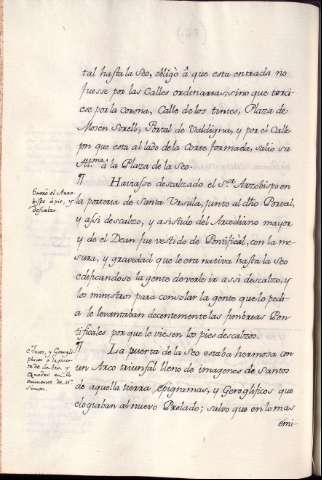 tal hasta la Seo, obligò â que esta entrada no
fuesse por las Calles ordenarias; sino que torci-
ese por la corona, Calle de los tintes, Plaza de
Mosen Sorell, Portal de Valdigna, y por el Calle-
jon que esta al lado de la Corte formada, salio su
Illma. à la Plaza de la Seo.
¶ Haviasse descalzado el Sor. Arzobispo en
la porteria de Santa Ursula, junto al dho Portal,
y assi descalzo, y asistido del Arcediano mayor
y de el Dean fue vestido de Pontifical, con la me-
sura, y gravedad que le era nativa hasta la Seo
edificandose la gente de verle ir assi descalzo, y
los ministros para consolar la gente que lo pedi-
a le levantaban decentemente las fimbrias Pon-
tificales por que le viesen los pies descalzos.
¶ La puerta de la Seo estaba hermosa con
un Arco triunfal lleno de imagenes de Santos
de aquella tierra, epigramas, y Geroglificos que
elogiaban al nuevo Prelado; salvo que en lo mas
emi-
Entrò el Arzo-
bispo à pie, y
descalzo
y Gerogli-
ficos à la puer-
ta de la Seo, y